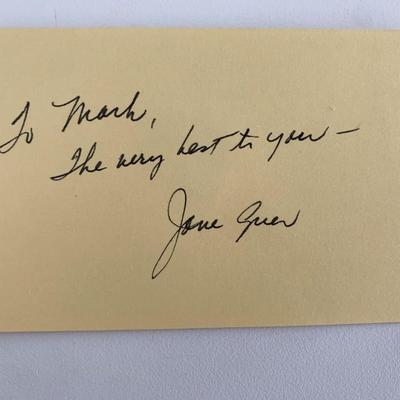 To Mark,
The very best to you –
Jane Greer